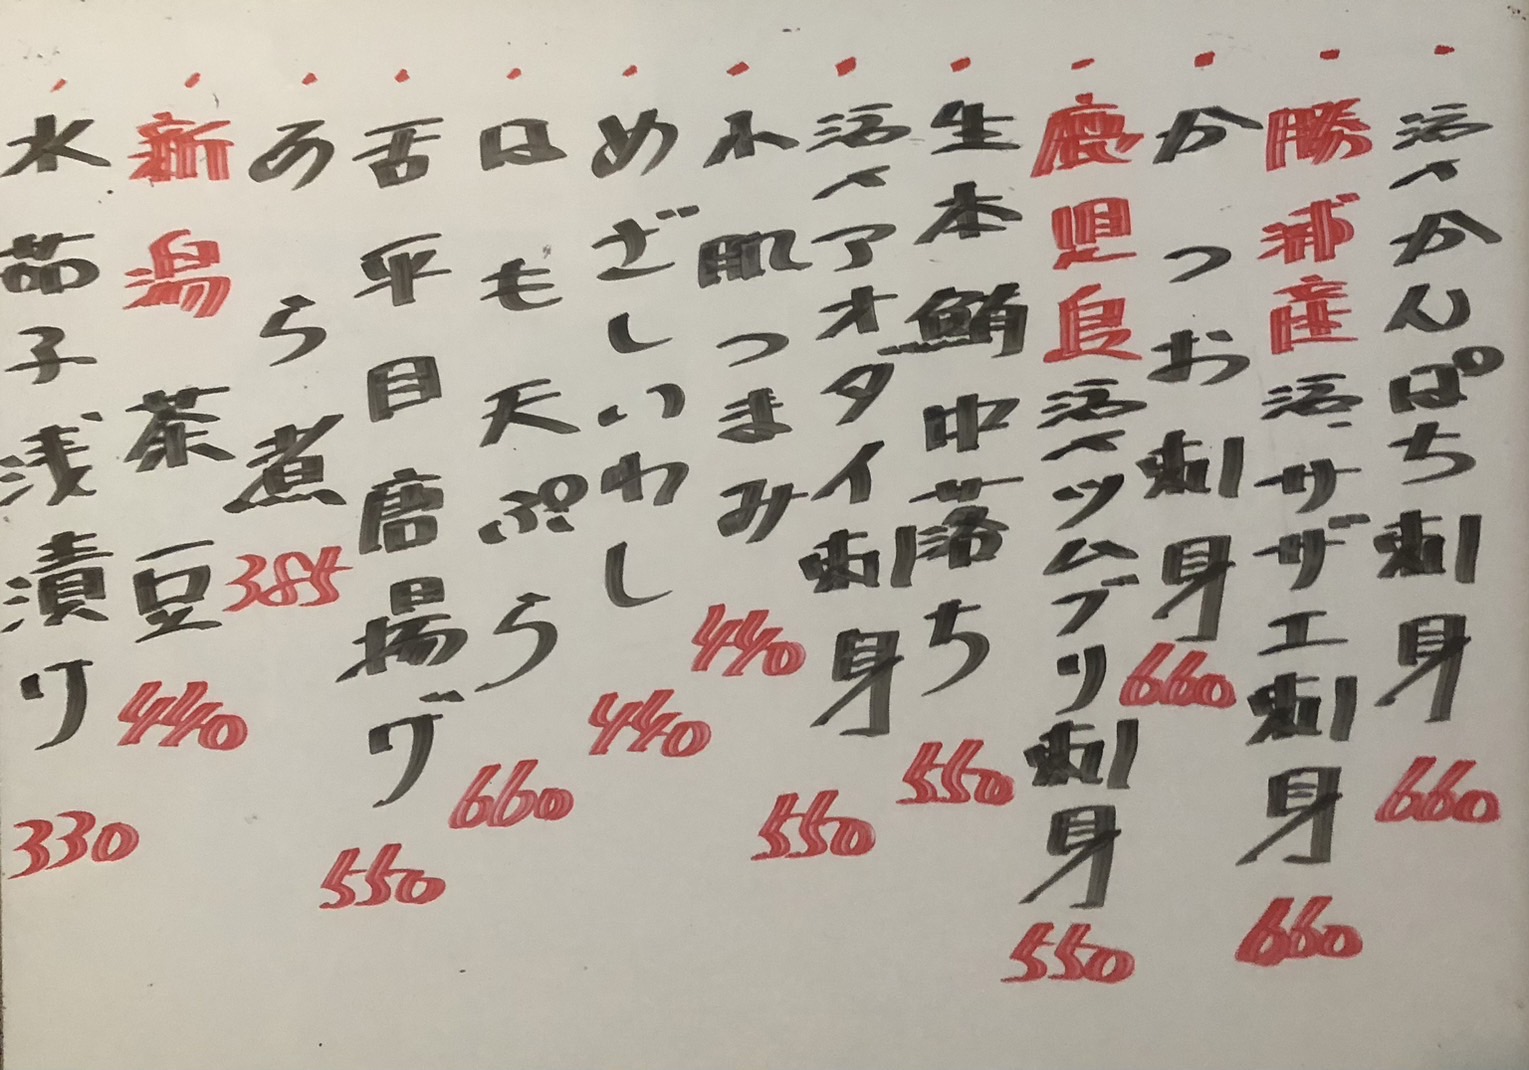 活〆かんぱち刺身 660
勝浦産活サザエ刺身 660
かつお刺身 660
鹿児島活〆ツムブリ刺身 550
生本鮪中落ち 550
活〆アオダイ刺身 550
水肌つまみ 440
めざしいわし 440
はも天ぷら 660
舌平目唐揚げ 550
あら煮 385
新潟茶豆 440
水茄子浅漬り 330